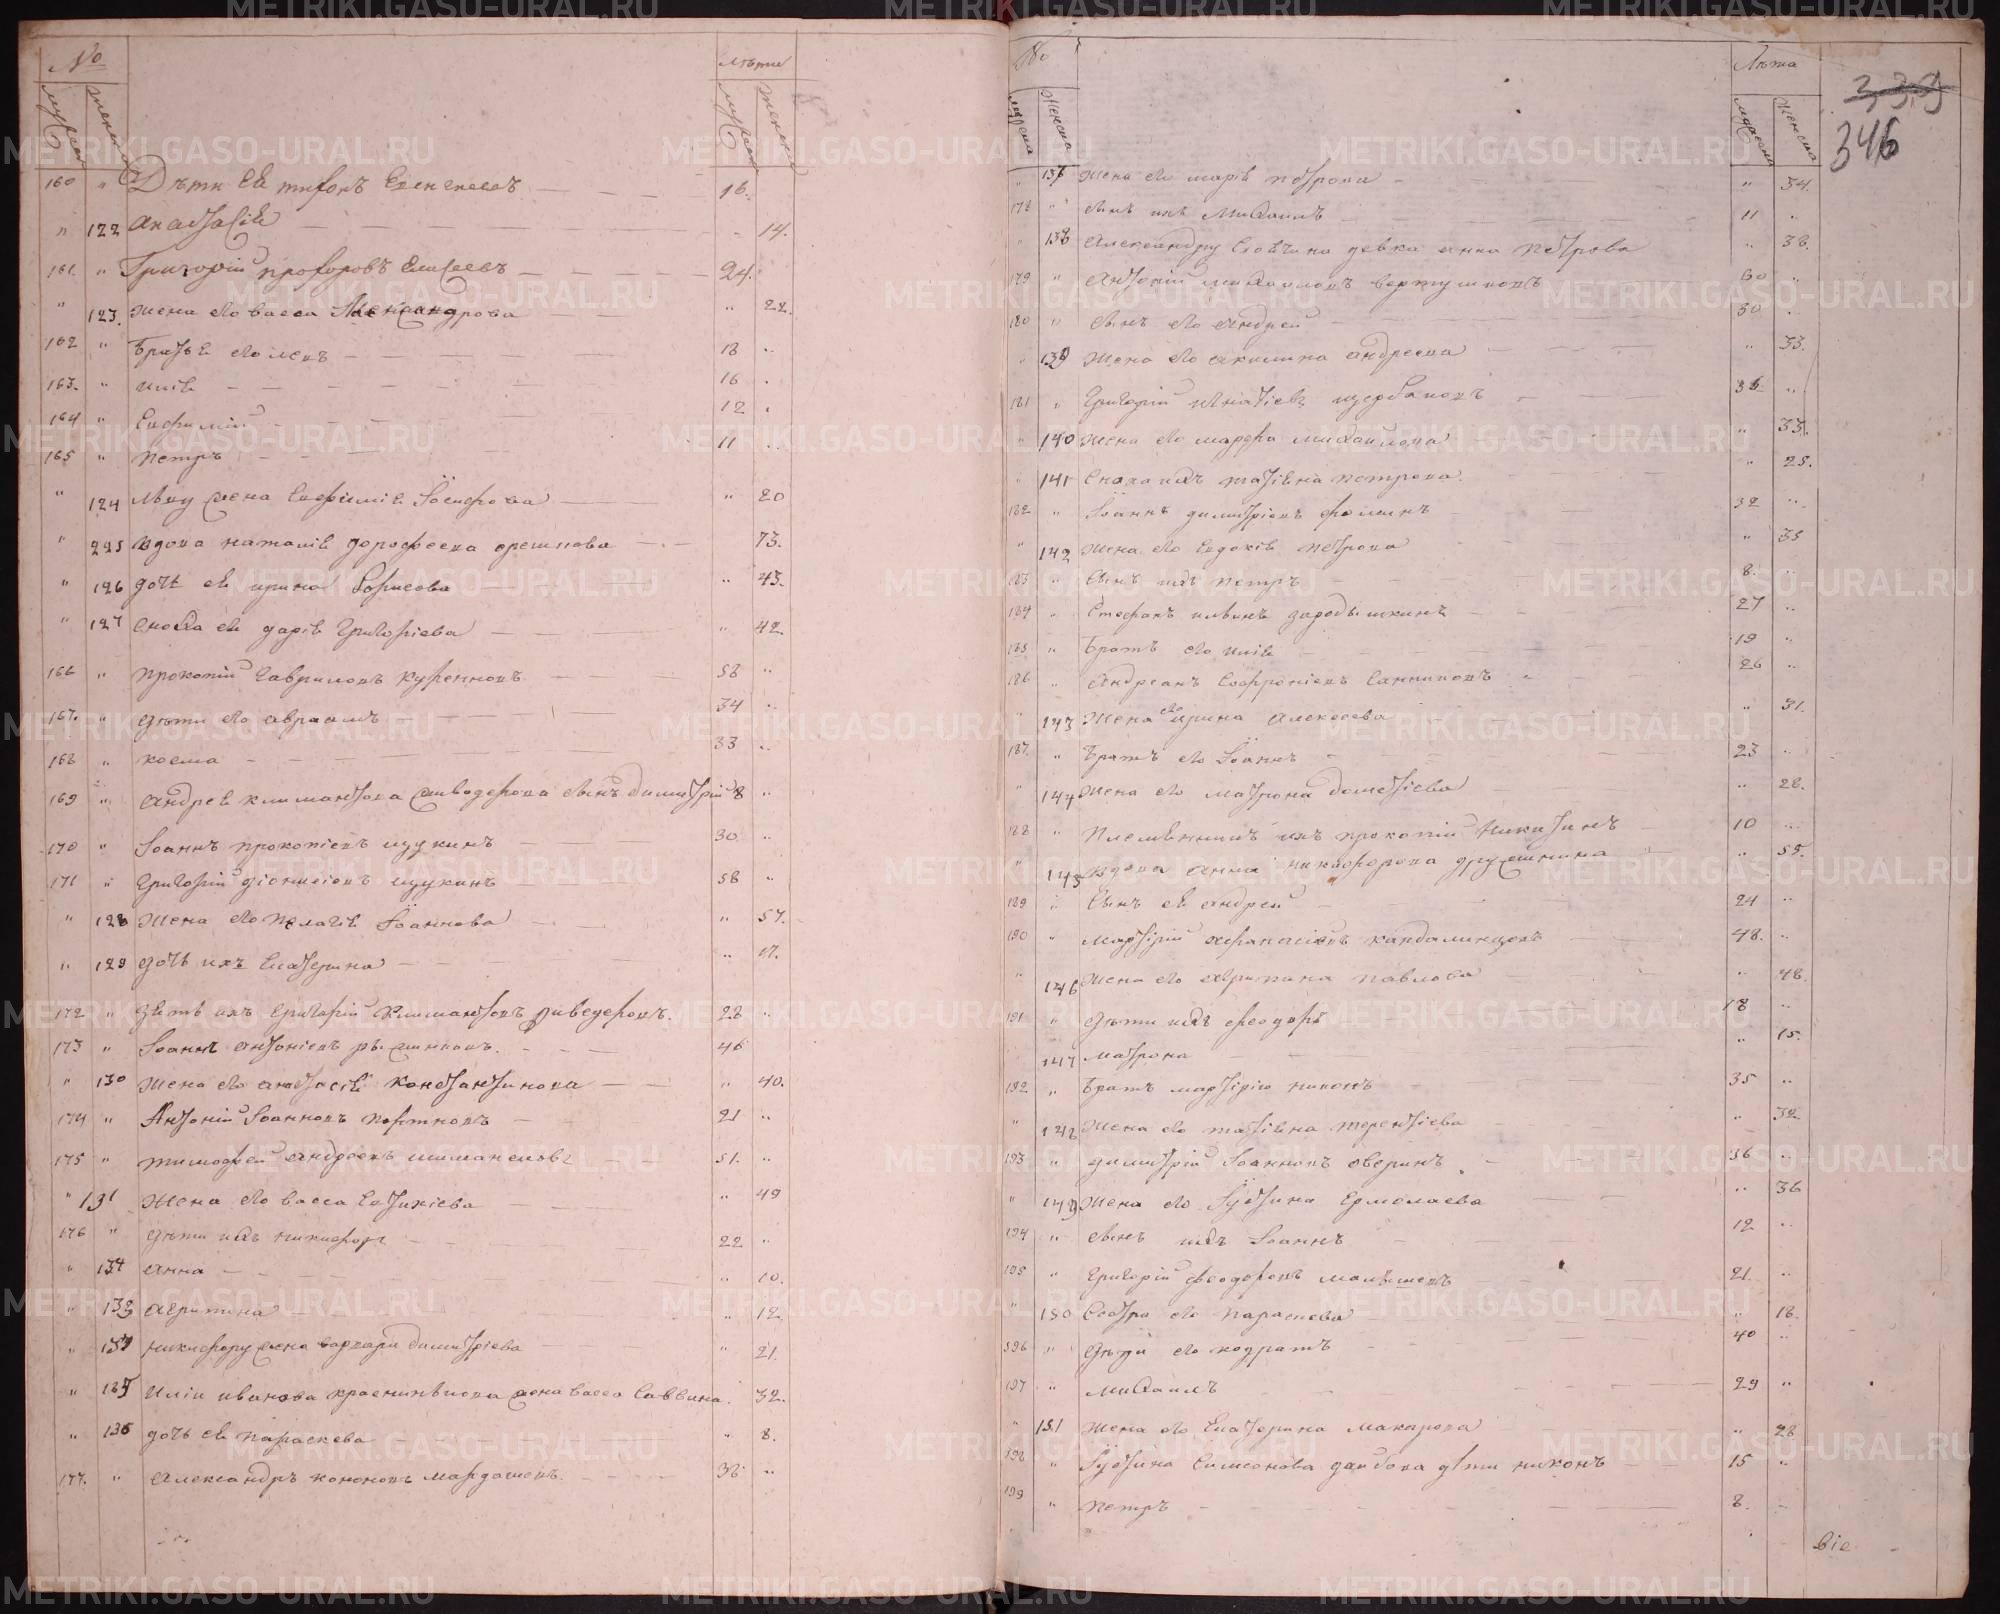 №
Лѣта
мужеска
женска
мужеска
женска
160 " Дѣти ея тихонъ Елисеевъ 16.
" 122 Анастасія 14.
161. " Григорій прохоровъ Елисеевъ 24.
" 123. жена его васса Александрова " 22.
162 " Братья его левъ 18 "
163. " илія 16 "
164 " Евфимій 12 "
165 " петръ 11 "
" 124 льву жена Евфимія Іосифова " 20
" 125 вдова наталія дорофеева орешкова 73.
" 126 дочь ея ирина борисова " 43.
" 127 сноха ея дарія григоріева " 42.
166 " прокопій гавриловъ куренновъ 58 "
167. " дѣти его авраамъ 34 "
168 " косма 33 "
169 " андрея климантова живодерова сынъ димитрій 8 "
170 " Іоаннъ прокопіевъ щукинъ 30 "
171 " григорій діонисіевъ щукинъ 58 "
" 128 жена его пелагія Іоаннова " 57.
" 129 дочь ихъ Екатерина " 17.
172 " зять ихъ григорій климантовъ живодеровъ. 28 "
173 " Іоаннъ антоніевъ 46
" 130 жена его анастасія константинова " 40.
174 " Антоній Іоанновъ портновъ 21 "
175 " тимофей андреевъ 51. "
" 131 жена его васса Евтихіева " 49
176 " дѣти ихъ никифоръ 22 "
" анна " 10.
" агрипина " 12
" никифору жена варвара димитріева " 21.
" 135 иліи иванова жена васса саввина 32.
" 136 дочь ея параскева " 8.
177. " александръ кононовъ мардашевъ. 38 "
№
Лѣта
мужеска
женска
мужеска
женска
339
346
" 137 жена его марія петрова " 34.
178 " сынъ ихъ михаилъ 11 "
" 138 Александру девка анна петрова " 38.
179 " антоній михаиловъ вертушковъ 60 "
180 " сынъ его андрей 30 "
" 139 жена его акилина андреева " 33.
181 " григорій игнатіевъ щербаковъ 36. "
" 140 жена его марфа михайлова " 33.
" 141 сноха ихъ татіяна петрова. " 25.
182 " Іоаннъ димитріевъ фоминъ 32 "
" 142 жена его Евдокія петрова " 35
183 " сынъ ихъ петръ 8. "
184 " стефанъ ильинъ зародышкинъ 27 "
185 " братъ его илія 19 "
186 " андреанъ софроніевъ санниковъ 26 "
" 143 жена его ирина алексеева " 31.
187. " братъ его Іоаннъ 23 "
" 144 жена его матрона дометіева " 28.
188 " племянникъ ихъ прокопій никитинъ 10 "
" 145 вдова анна никифорова дружинина " 55.
189 " сынъ ея андрей 24 "
190 " мартирій афанасіевъ кандалинцовъ 48. "
" 146 жена его агрипина павлова " 48.
191 " дѣти ихъ феодоръ 18 "
147 матрона " 15.
192 " братъ мартирію никонъ 35 "
" 148 жена его татіяна терентіева " 32
193 " димитрій Іоанновъ оверинъ. 36 "
" 149 жена его Іустина Ермолаева " 36
194 " сынъ ихъ Іоаннъ 12 "
195 " григорій феодоровъ малышевъ 21. "
" 150 сестра его параскева " 18.
196 " дяди его кодратъ 40 "
197 " михаилъ 29 "
" 151 жена его Екатерина макарова " 28
198 " Іустина симеонова дѣти никонъ 15 "
199 " петръ 8.
METRIKI.GASO-URAL.RU